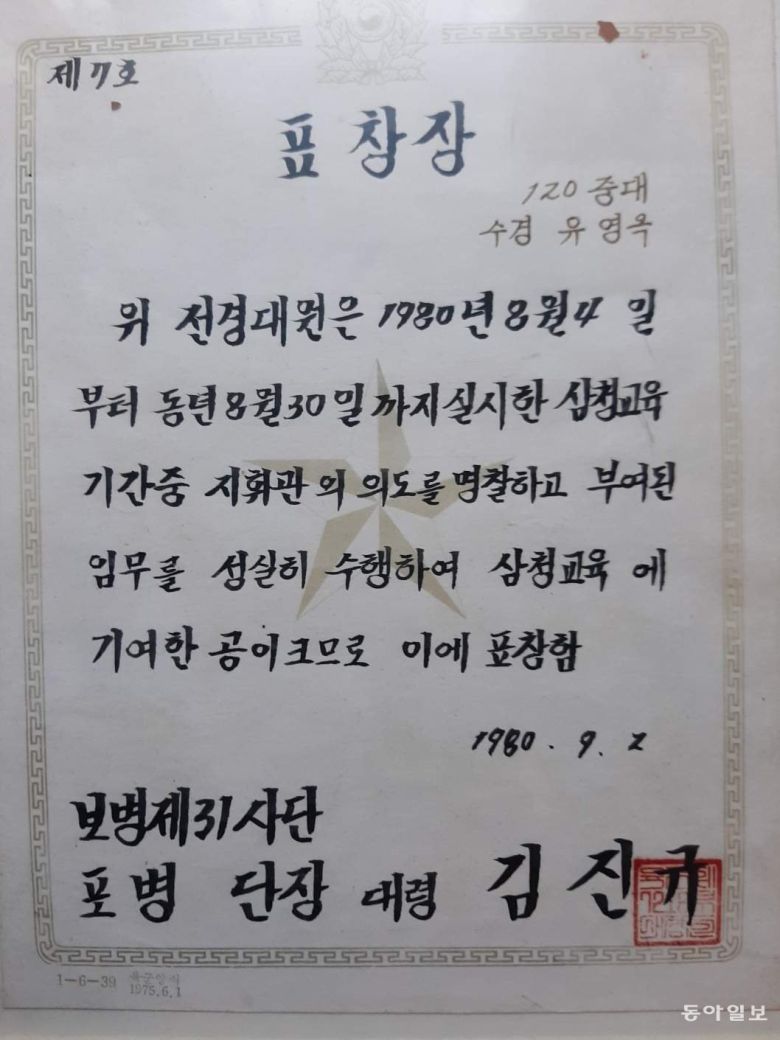 제 7 호
표 창 장
120 중대
수경 유 영 옥
위 전경대원은 1980년 8월 4 일
부터 동년 8월 30일 까지 실시한 삼청교육
기간중 지휘관 의 의도를 명찰하고 부여된
임무를 성실히 수행하여 삼청교육 에
기여한 공이크므로 이에 표창함
1980 . 9. 2
보병제31사단
포병 단장 대령 김 진 규
1-6-39 육군양식
1975.6.1
동아일보